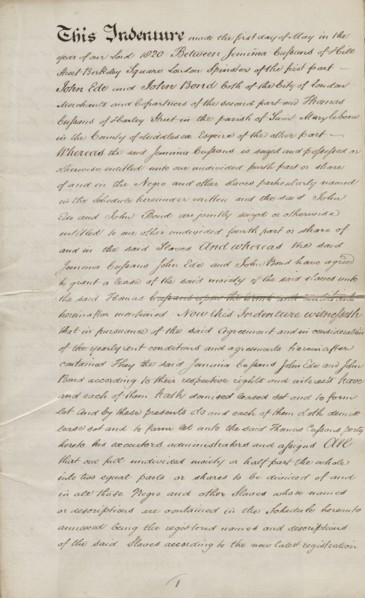 This Indenture made the first day of May in the
year of our Lord 1820 Between Jemima Cussans of Hill
Street Berkeley Square London Spinster of the first part
John Ede and John Bond both of the City of London
Merchants and Copartners of the second part and Thomas
Cussans of Harley Street in the parish of Saint Marylebone
in the County of Middlesex Esquire of the other part
Whereas the said Jemima Cussans is seized and possessed or
otherwise entitled unto one undivided fourth part or share
of and in the Negro and other slaves particularly named
in the Schedule hereunder written and the said John
Ede and John Bond are jointly seized or otherwise
entitled to one other undivided fourth part or share of
and in the said Slaves And whereas the said
Jemima Cussans John Ede and John Bond have agreed
to grant a lease of the said moiety of the said slaves unto
the said Thomas Cussans upon the terms and conditions
hereinafter mentioned Now this Indenture witnesseth
that in pursuance of the said Agreement and in consideration
of the yearly rent conditions and agreements hereinafter
contained They the said Jemima Cussans John Ede and John
Bond according to their respective rights and interests have
and each of them hath demised leased set and to farm
let And by these presents do and each of them doth demise
lease set and to farm let unto the said Thomas Cussans party
hereto his executors administrators and assigns All
that one full undivided moiety or half part the whole
into two equal parts or shares to be divided of and
in all those Negro and other Slaves whose names
or descriptions are contained in the Schedule hereunto
annexed being the registered names and descriptions
of the said Slaves according to the now latest registration
1